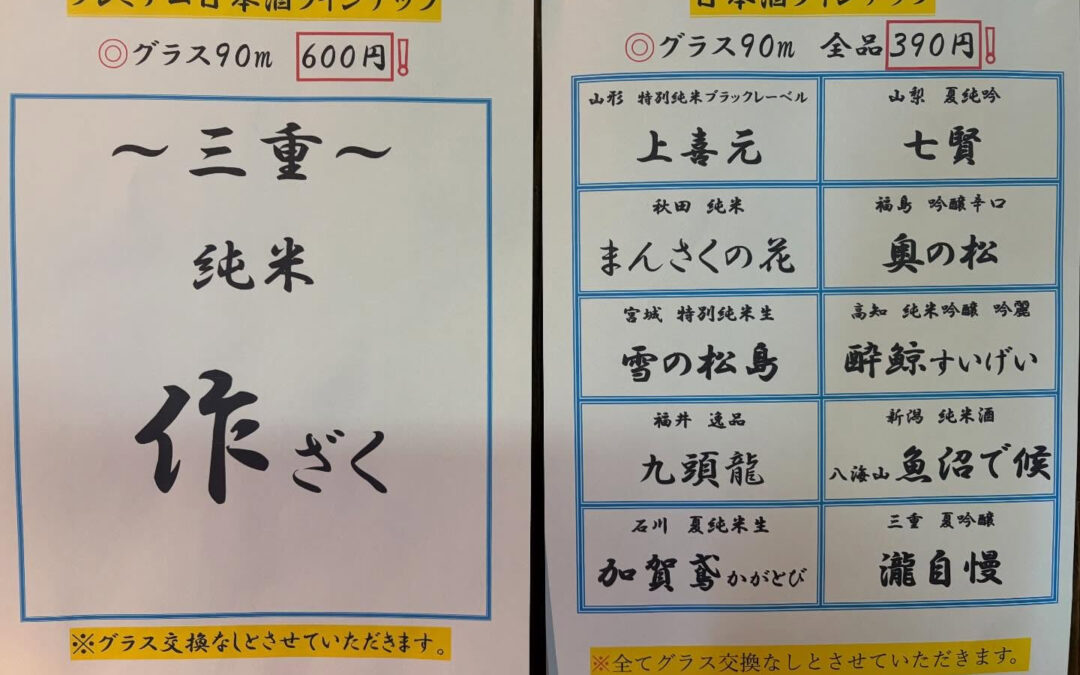 プレミアム日本酒ラインナップ
◎グラス90m 600円!
～三重～
純米
作ざく
※グラス交換なしとさせていただきます。
日本酒ラインナップ
◎グラス90m 全品390円!
山形 特別純米ブラックレーベル
上喜元
山梨 夏純吟
七賢
秋田 純米
まんさくの花
福島 吟醸辛口
奥の松
宮城 特別純米生
雪の松島
高知 純米吟醸 吟麗
酔鯨すいげい
福井 逸品
九頭龍
新潟 純米酒
八海山 魚沼で候
石川 夏純米生
加賀鳶かがとび
三重 夏吟醸
瀧自慢
※全てグラス交換なしとさせていただきます。